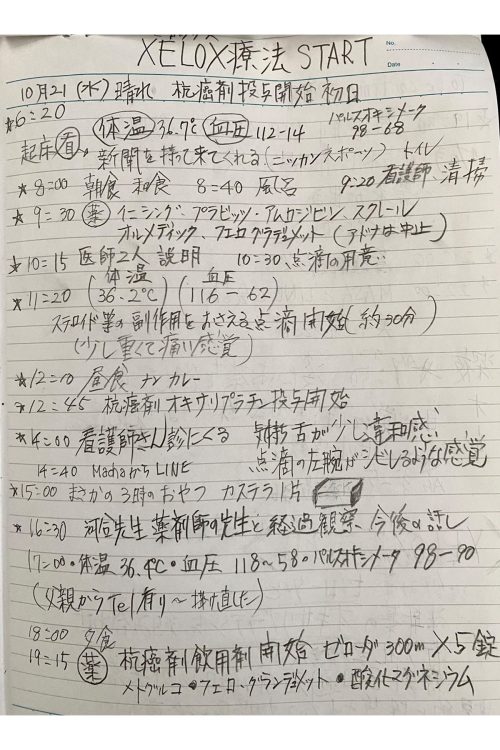 XELOX療法 START
No.
Date
10月21(水)晴れ 抗癌剤投与開始初日
*6:20 体温 36.9℃ 血圧 112-14 パルスオキシメータ 98-68
起床 看 新聞を持って来てくれる(ニッカンスポーツ) トイレ
*8:00 朝食 和食 8:40 風呂 9:20 看護師 清掃
*9:30 薬 イニシング、プラビッツ・アムロジピン、スクレール
オルメディック、フェログラデュメット(アドナは中止)
*10:15 医師2人 説明 10:30 点滴の用意
*11:20 (体温 36.2℃) (血圧 116-62)
ステロイド等の副作用をおさえる点滴開始(約30分)
(少し重くて痛い感覚)
*12:10 昼食 ナンカレー
*12:45 抗癌剤オキサリプラチン投与開始
*14:00 看護師さん診にくる 舌が少し違和感
14:40 MachaからLINE 点滴の左腕がシビレるような感覚
*15:00 まさかの3時のおやつ カステラ1片
*16:30 河合先生 薬剤師の先生と経過観察 今後の話し
17:00・体温 36.4℃・血圧 118~58・パルスオキシメータ 98-90
(父親からTel有り~掛け直した)
18:00 夕食
19:15 薬 抗癌剤飲用剤開始 ゼローダ300m×5錠
メトグルコ・フェロ・グランデュメット・酸化マグネシウム